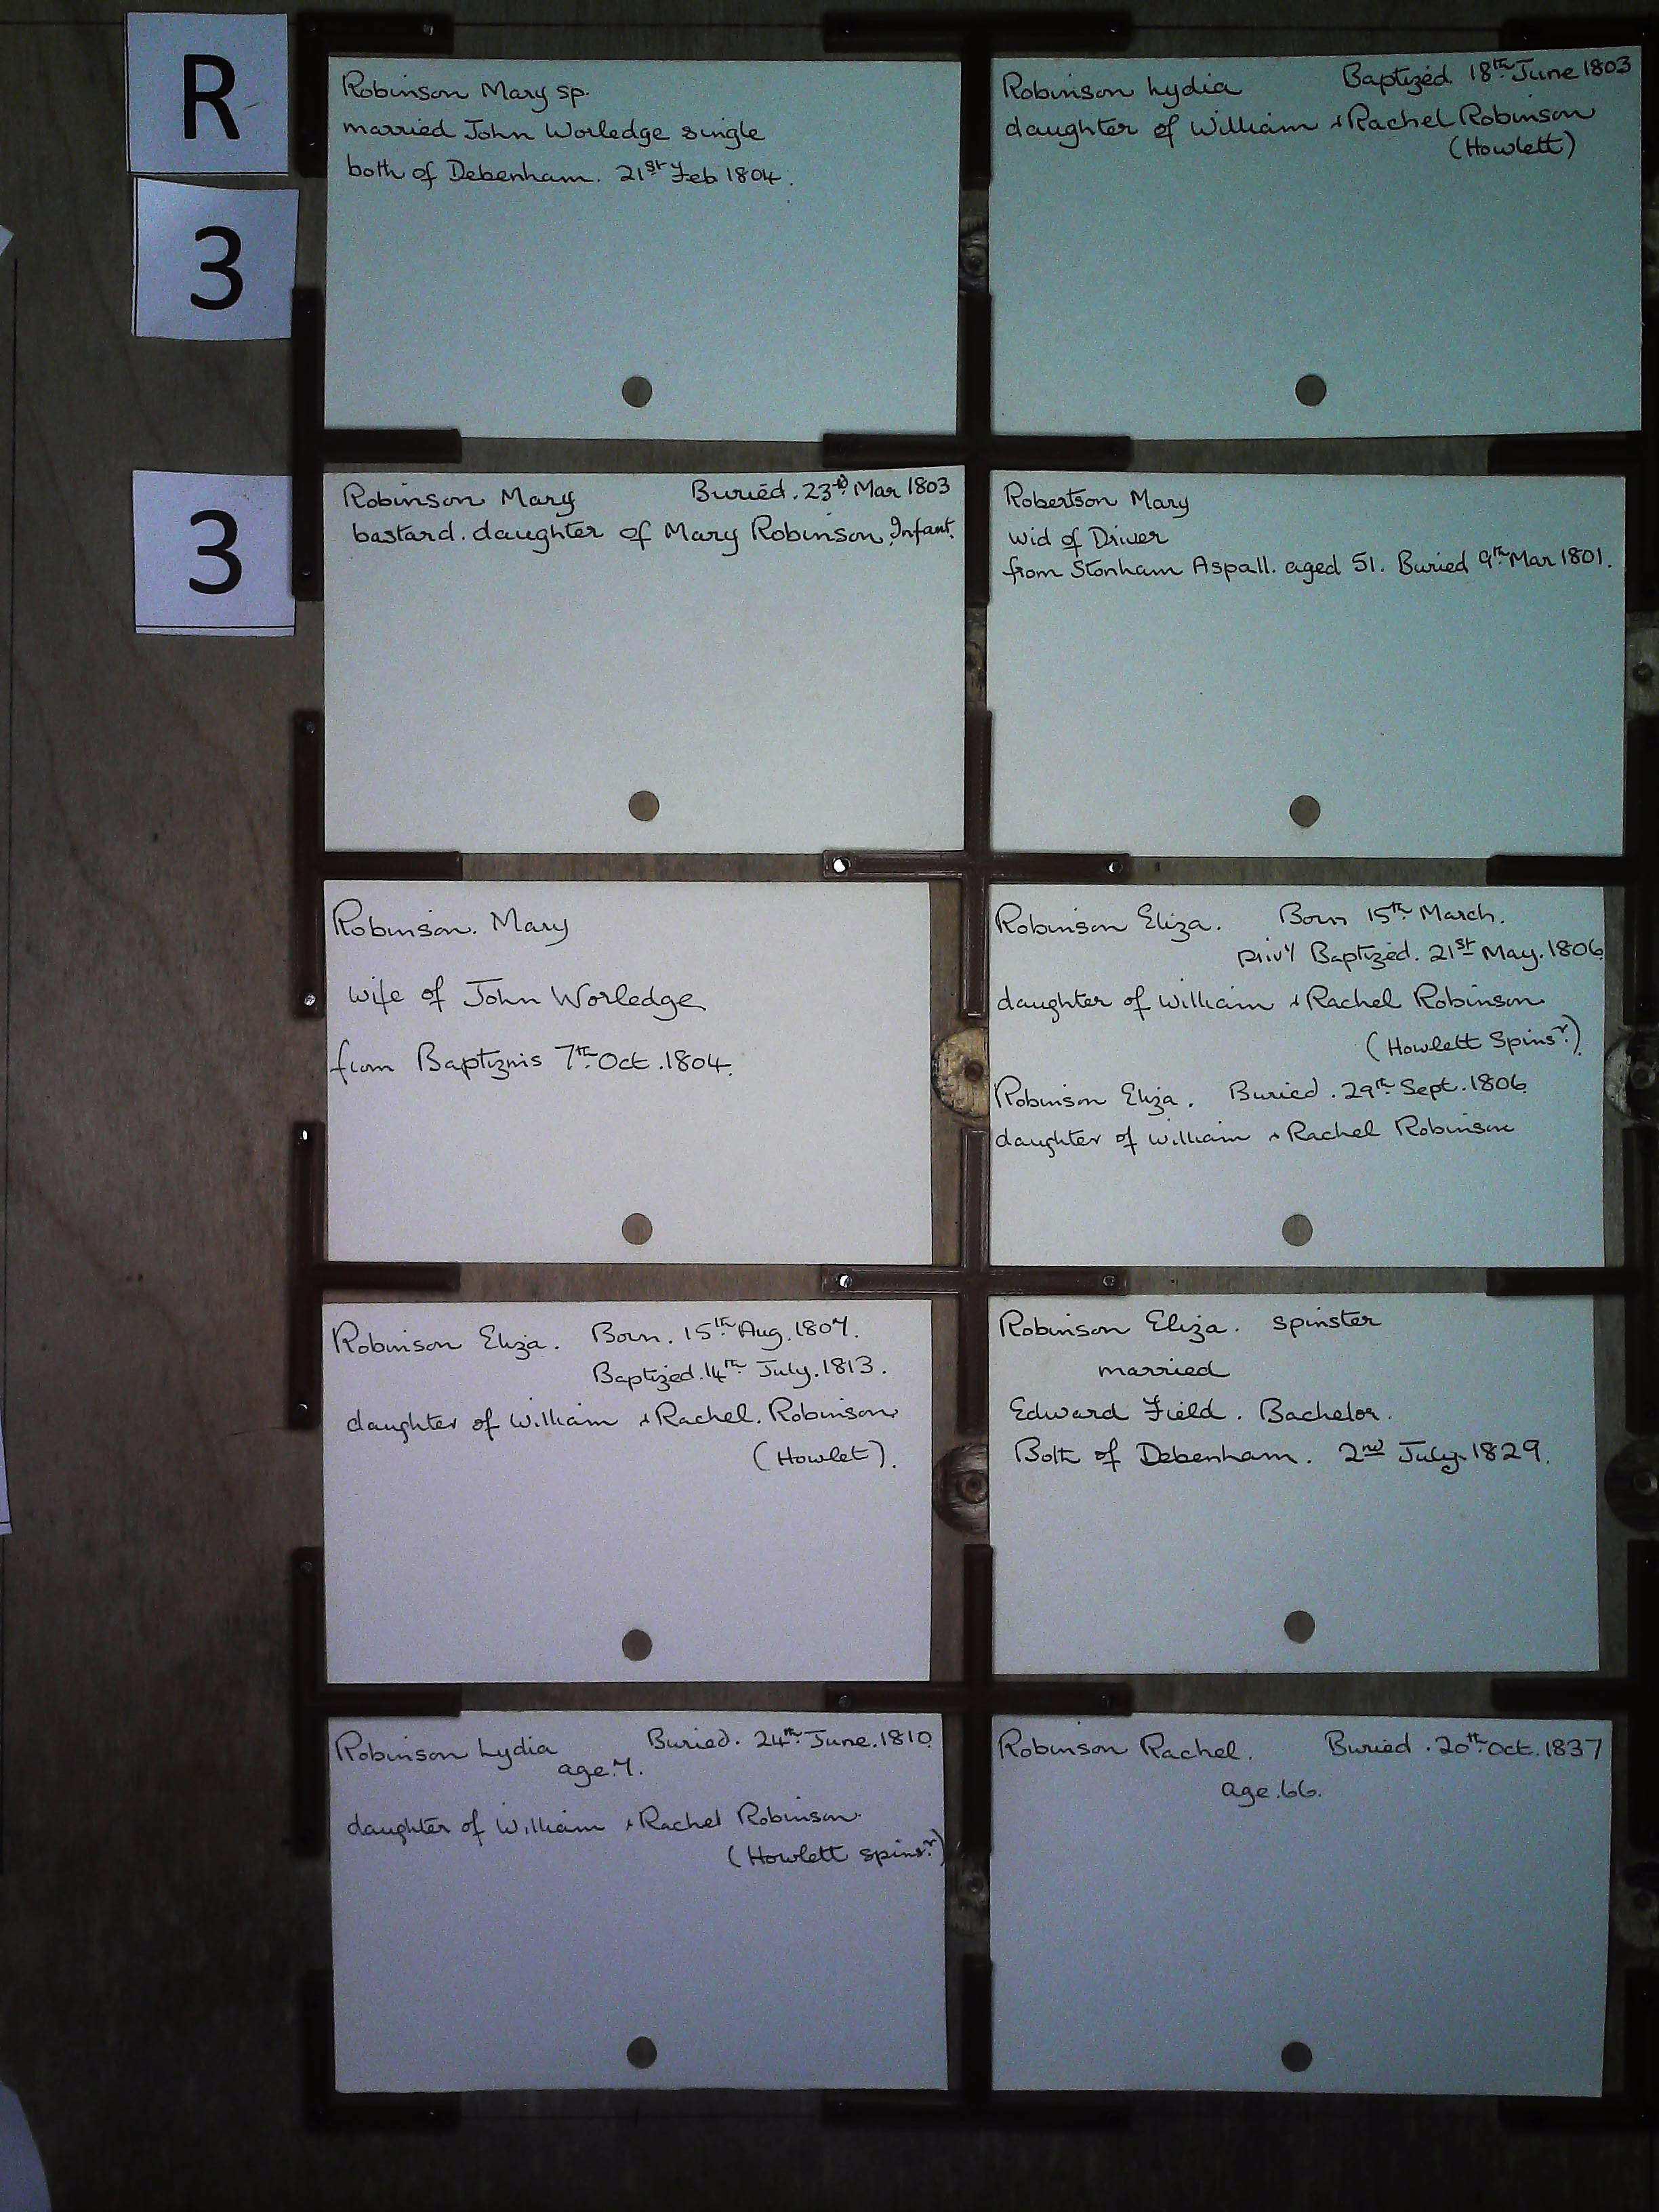 R
3
3
Robinson Mary sp.
married John Worledge single
both of Debenham. 21st Feb 1804.
Robinson Lydia Baptized 18th June 1803
daughter of William & Rachel Robinson
(Howlett)
Robinson Mary Buried. 23rd Mar 1803
bastard. daughter of Mary Robinson. Infant.
Robertson Mary
wid of Driver
from Stonham Aspall. aged 51. Buried 9th Mar 1801.
Robinson. Mary
wife of John Worledge
from Baptizms 7th Oct. 1804.
Robinson Eliza. Born 15th March.
privy Baptized. 21st May. 1806.
daughter of William & Rachel Robinson
(Howlett Spinsr.)
Robinson Eliza. Buried. 29th Sept. 1806
daughter of William & Rachel Robinson
Robinson Eliza. Born. 15th Aug. 1807.
Baptized. 14th July. 1813.
daughter of William & Rachel. Robinson
(Howlet).
Robinson Eliza. spinster
married
Edward Field. Bachelor.
Both of Debenham. 2nd July. 1829.
Robinson Lydia Buried. 24th June. 1810
age. 7.
daughter of William & Rachel Robinson
(Howlett spinsr.)
Robinson Rachel. Buried. 20th Oct. 1837
age. 66.